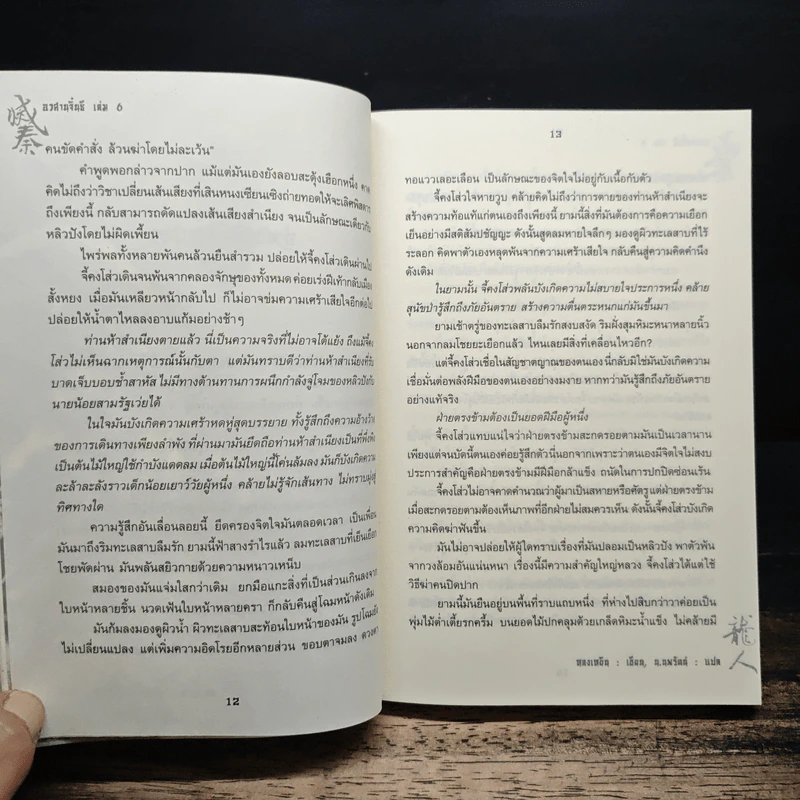 滅秦
อวสานจิ๋นซี เล่ม 6
คนขัดคำสั่ง ล้วนฆ่าโดยไม่ละเว้น"
คำพูดพอกล่าวจากปาก แม้แต่มันเองยังลอบสะดุ้งเฮือกหนึ่ง คาด
คิดไม่ถึงว่าวิชาเปลี่ยนเส้นเสียงที่เสินหนงเซียนเซิงถ่ายทอดให้จะเลิศพิสดาร
ถึงเพียงนี้ กลับสามารถดัดแปลงเส้นเสียงสำเนียง จนเป็นลักษณะเดียวกับ
หลิวปังโดยไม่ผิดเพี้ยน
ไพร่พลทั้งหลายพันคนล้วนยืนสำรวม ปล่อยให้จี้คงโส่วเดินผ่านไป
จี้คงโส่วเดินจนพ้นจากคลองจักษุของทั้งหมด ค่อยเร่งฝีเท้ากลับเมือง
สั้งหยง เมื่อมันเหลียวหน้ากลับไป ก็ไม่อาจข่มความเศร้าเสียใจอีกต่อไป
ปล่อยให้น้ำตาไหลลงอาบแก้มอย่างช้าๆ
ท่านห้าสำเนียงตายแล้ว นี่เป็นความจริงที่ไม่อาจโต้แย้ง ถึงแม้จี้คง
โส่วไม่เห็นฉากเหตุการณ์นั้นกับตา แต่มันทราบดีว่าท่านห้าสำเนียงที่รับ
บาดเจ็บบอบช้ำสาหัส ไม่มีทางต้านทานการผนึกกำลังจู่โจมของหลิวปังกับ
นายน้อยสามรัฐเว่ยได้
ในใจมันบังเกิดความเศร้าหดหู่สุดบรรยาย ทั้งรู้สึกถึงความอ้างว้าง
ของการเดินทางเพียงลำพัง ที่ผ่านมามันยึดถือท่านห้าสำเนียงเป็นที่พึ่งพิง
เป็นต้นไม้ใหญ่ใช้กำบังแดดลม เมื่อต้นไม้ใหญ่นี้โค่นล้มลง มันก็บังเกิดความ
ละล้าละลังราวเด็กน้อยเยาว์วัยผู้หนึ่ง คล้ายไม่รู้จักเส้นทาง ไม่ทราบมุ่งสู่
ทิศทางใด
ความรู้สึกอันเลื่อนลอยนี้ ยึดครองจิตใจมันตลอดเวลา เป็นเพื่อน
มันมาถึงริมทะเลสาบลืมรัก ยามนี้ฟ้าสางรำไรแล้ว ลมทะเลสาบที่เย็นเยียบ
โชยพัดผ่าน มันพลันสยิวกายด้วยความหนาวเหน็บ
สมองของมันแจ่มใสกว่าเดิม ยกมือแกะสิ่งที่เป็นส่วนเกินลงจาก
ใบหน้าหลายชิ้น นวดเฟ้นใบหน้าหลายครา ก็กลับคืนสู่โฉมหน้าดังเดิม
มันก้มลงมองดูผิวน้ำ ผิวทะเลสาบสะท้อนใบหน้าของมัน รูปโฉมยัง
ไม่เปลี่ยนแปลง แต่เพิ่มความอิดโรยอีกหลายส่วน ขอบตาจมลง ดวงตา
12
13
ทอแววเลอะเลือน เป็นลักษณะของจิตใจไม่อยู่กับเนื้อกับตัว
จี้คงโส่วใจหายวูบ คล้ายคิดไม่ถึงว่าการตายของท่านห้าสำเนียงจะ
สร้างความท้อแท้แก่ตนเองถึงเพียงนี้ ยามนี้สิ่งที่มันต้องการคือความเยือก
เย็นอย่างมีสติสัมปชัญญะ ดังนั้นสูดลมหายใจลึกๆ มองดูผิวทะเลสาบที่ไร้
ระลอก คิดพาตัวเองหลุดพ้นจากความเศร้าเสียใจ กลับคืนสู่ความคิดคำนึง
ดังเดิม
ในยามนั้น จี้คงโส่วพลันบังเกิดความไม่สบายใจประการหนึ่ง คล้าย
สุนัขป่ารู้สึกถึงภัยอันตราย สร้างความตื่นตระหนกแก่มันขึ้นมา
ยามเช้าตรู่ของทะเลสาบลืมรักสงบสงัด ริมฝั่งสุมหิมะหนาหลายนิ้ว
นอกจากลมโชยยะเยือกแล้ว ไหนเลยมีสิ่งที่เคลื่อนไหวอีก?
แต่จี้คงโส่วเชื่อในสัญชาตญาณของตนเอง นี่กลับมิใช่มันบังเกิดความ
เชื่อมั่นต่อพลังฝีมือของตนเองอย่างงมงาย หากทว่ามันรู้สึกถึงภัยอันตราย
อย่างแท้จริง
ฝ่ายตรงข้ามต้องเป็นยอดฝีมือผู้หนึ่ง
จี้คงโส่วแทบแน่ใจว่าฝ่ายตรงข้ามสะกดรอยตามมันเป็นเวลานาน
เพียงแต่จนบัดนี้ตนเองค่อยรู้สึกตัว นี่นอกจากเพราะว่าตนเองมีจิตใจไม่สงบ
ประการสำคัญคือฝ่ายตรงข้ามมีฝีมือกล้าแข็ง ถนัดในการปกปิดซ่อนเร้น
จี้คงโส่วไม่อาจคาดคำนวณว่าผู้มาเป็นสหายหรือศัตรู แต่ฝ่ายตรงข้าม
เมื่อสะกดรอยตามต้องเห็นภาพที่อีกฝ่ายไม่สมควรเห็น ดังนั้นจี้คงโส่วบังเกิด
ความคิดฆ่าฟันขึ้น
มันไม่อาจปล่อยให้ผู้ใดทราบเรื่องที่มันปลอมเป็นหลิวปัง พาตัวพ้น
จากวงล้อมอันแน่นหนา เรื่องนี้มีความสำคัญใหญ่หลวง จี้คงโส่วได้แต่ใช้
วิธีฆ่าคนปิดปาก
ยามนี้มันยืนอยู่บนพื้นที่ราบแถบหนึ่ง ที่ห่างไปสิบกว่าวาค่อยเป็น
พุ่มไม้ต่ำเตี้ยรกครึ้ม บนยอดไม้ปกคลุมด้วยเกล็ดหิมะน้ำแข็ง ไม่คล้ายมี
龍人
หลงเหยิน : เขียน, น.นพรัตน์ : แปล